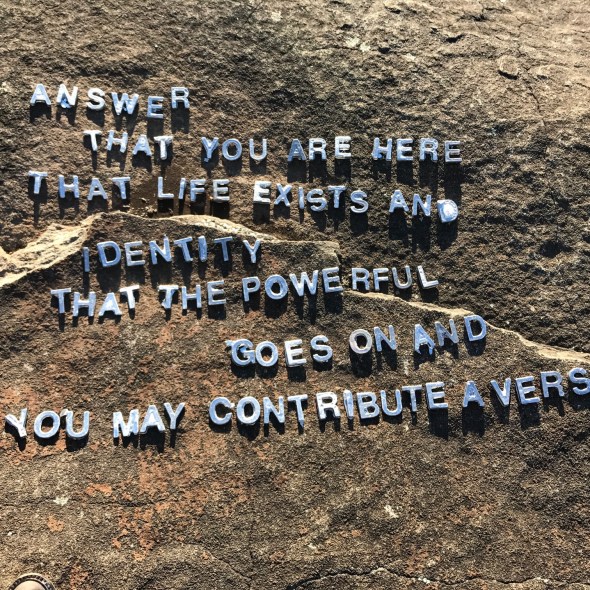 ANSWER
THAT YOU ARE HERE
THAT LIFE EXISTS AND
IDENTITY
THAT THE POWERFUL
GOES ON AND
YOU MAY CONTRIBUTE A VERS